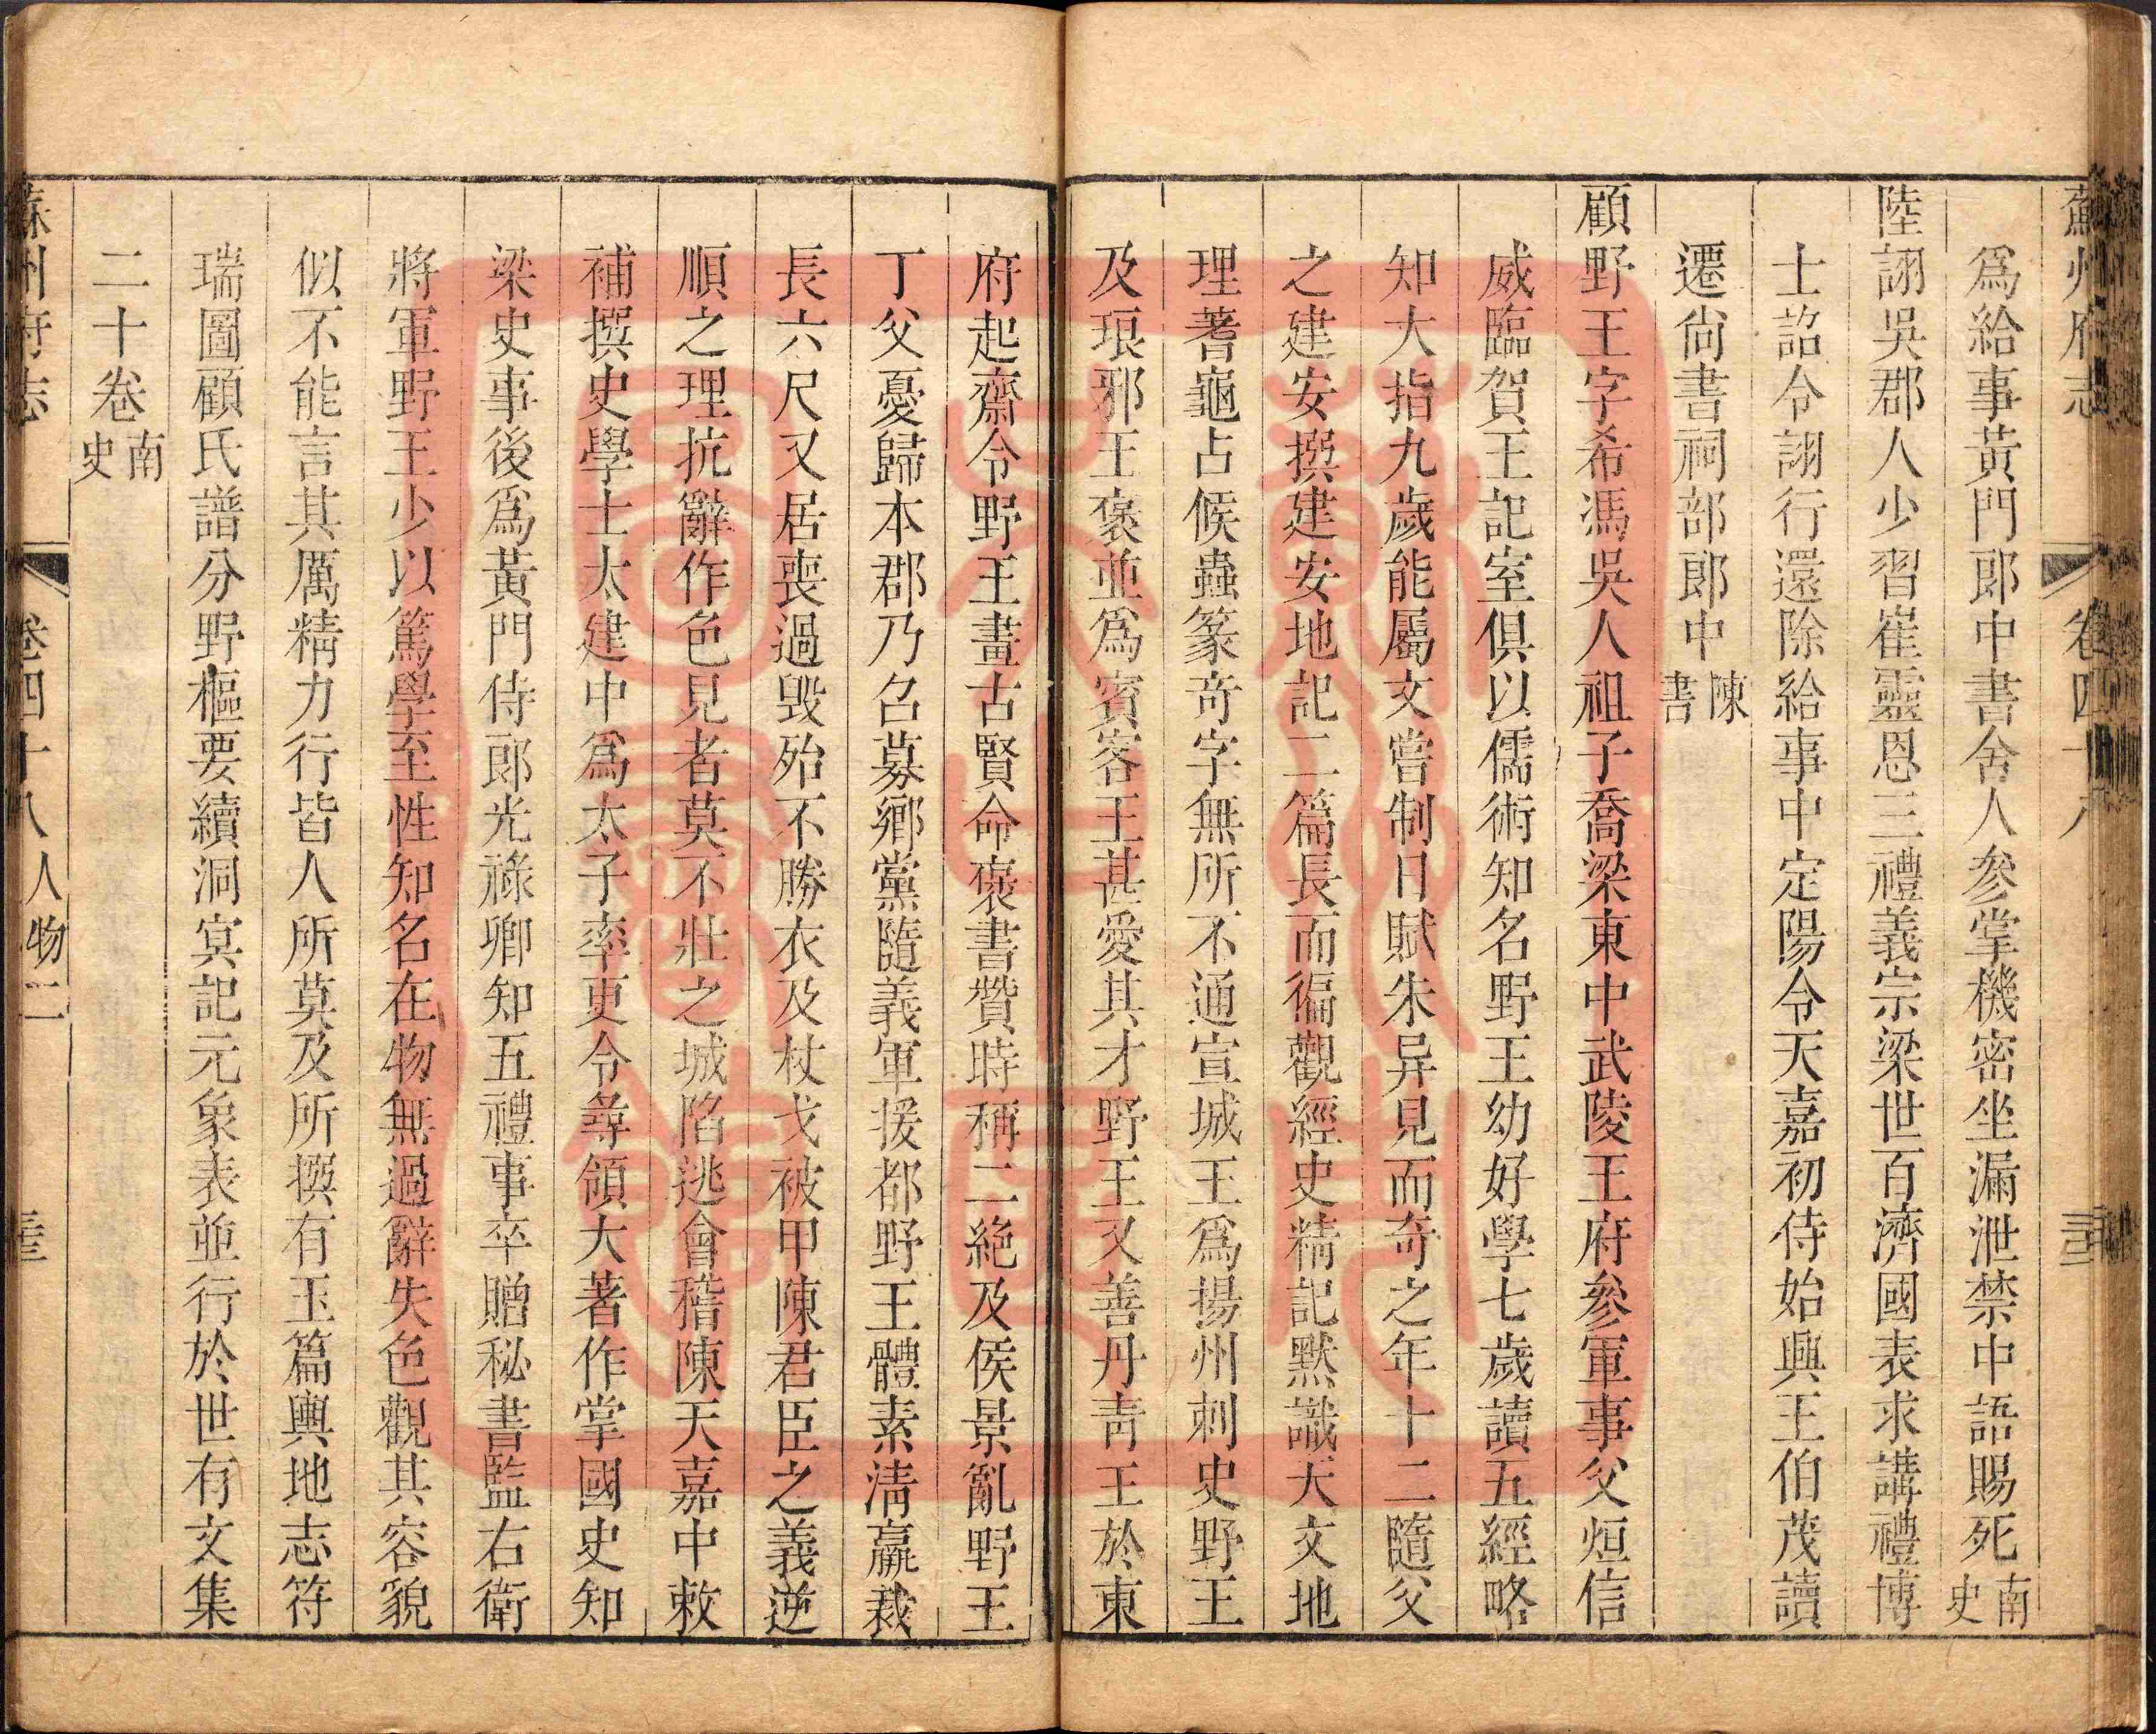 蘇州府志 卷四十八
爲給事黃門郎中書舍人參掌機密坐漏泄禁中語賜死南史
陸詡吳郡人少習崔靈恩三禮義宗梁世百濟國表求講禮博
士詔令詡行還除給事中定陽令天嘉初侍始興王伯茂讀
遷尚書祠部郎中陳書
顧野王字希馮吳人祖子喬梁東中武陵王府參軍事父烜信
威臨賀王記室俱以儒術知名野王幼好學七歲讀五經略
知大指九歲能屬文嘗制日賦朱异見而奇之年十二隨父
之建安撰建安地記二篇長而徧觀經史精記默識天文地
理蓍龜占候蟲篆奇字無所不通宣城王爲揚州刺史野王
及琅邪王褒並爲賓客王甚愛其才野王又善丹靑王於東
府起齋令野王畫古賢命褒書贊時稱二絕及侯景亂野王
丁父憂歸本郡乃召募鄉黨隨義軍援都野王體素淸羸裁
長六尺又居喪過毀殆不勝衣及杖戈被甲陳君臣之義逆
順之理抗辭作色見者莫不壯之城陷逃會稽陳天嘉中敕
補撰史學士太建中爲太子率更令尋領大著作掌國史知
梁史事後爲黃門侍郎光祿卿知五禮事卒贈秘書監右衛
將軍野王少以篤學至性知名在物無過辭失色觀其容貌
似不能言其厲精力行皆人所莫及所撰有玉篇輿地志符
瑞圖顧氏譜分野樞要續洞冥記元象表並行於世有文集
二十卷南史
蘇州府志 卷四十八人物二